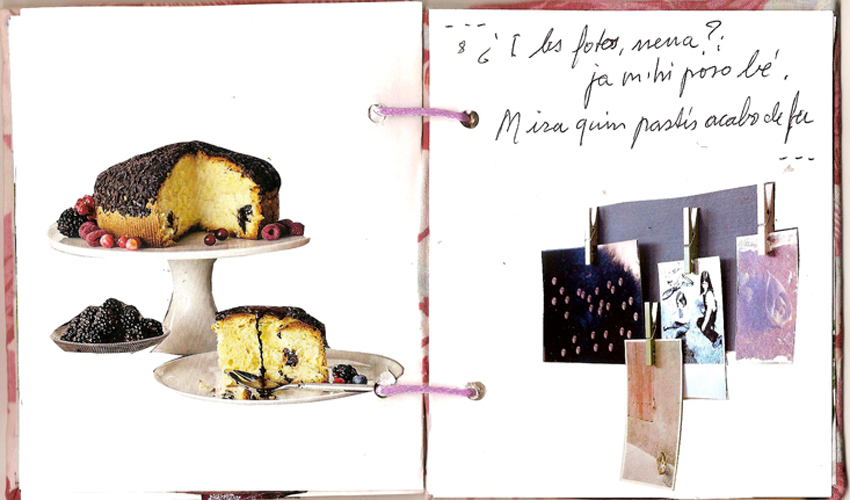 ¿I les fotos, nena?
ja m'hi poso bé.
Mira quin pastís acabo de fer